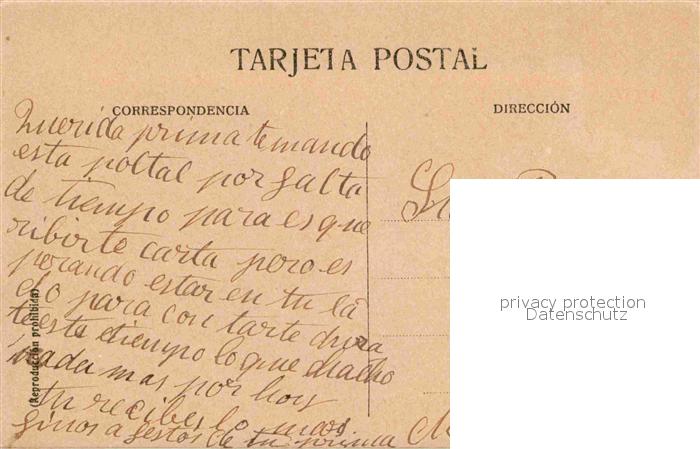 TARJETA POSTAL
CORRESPONDENCIA
DIRECCIÓN
Querida prima te mando
esta poltal por galta
de tiempo para es que
ribirte carta pero es
perando estar en tu la
do para con tarte
este tiempo lo que
nada mas por hoy
tu recibes lo mas
de tu prima
(Reproducción prohibida)
privacy protection
Datenschutz